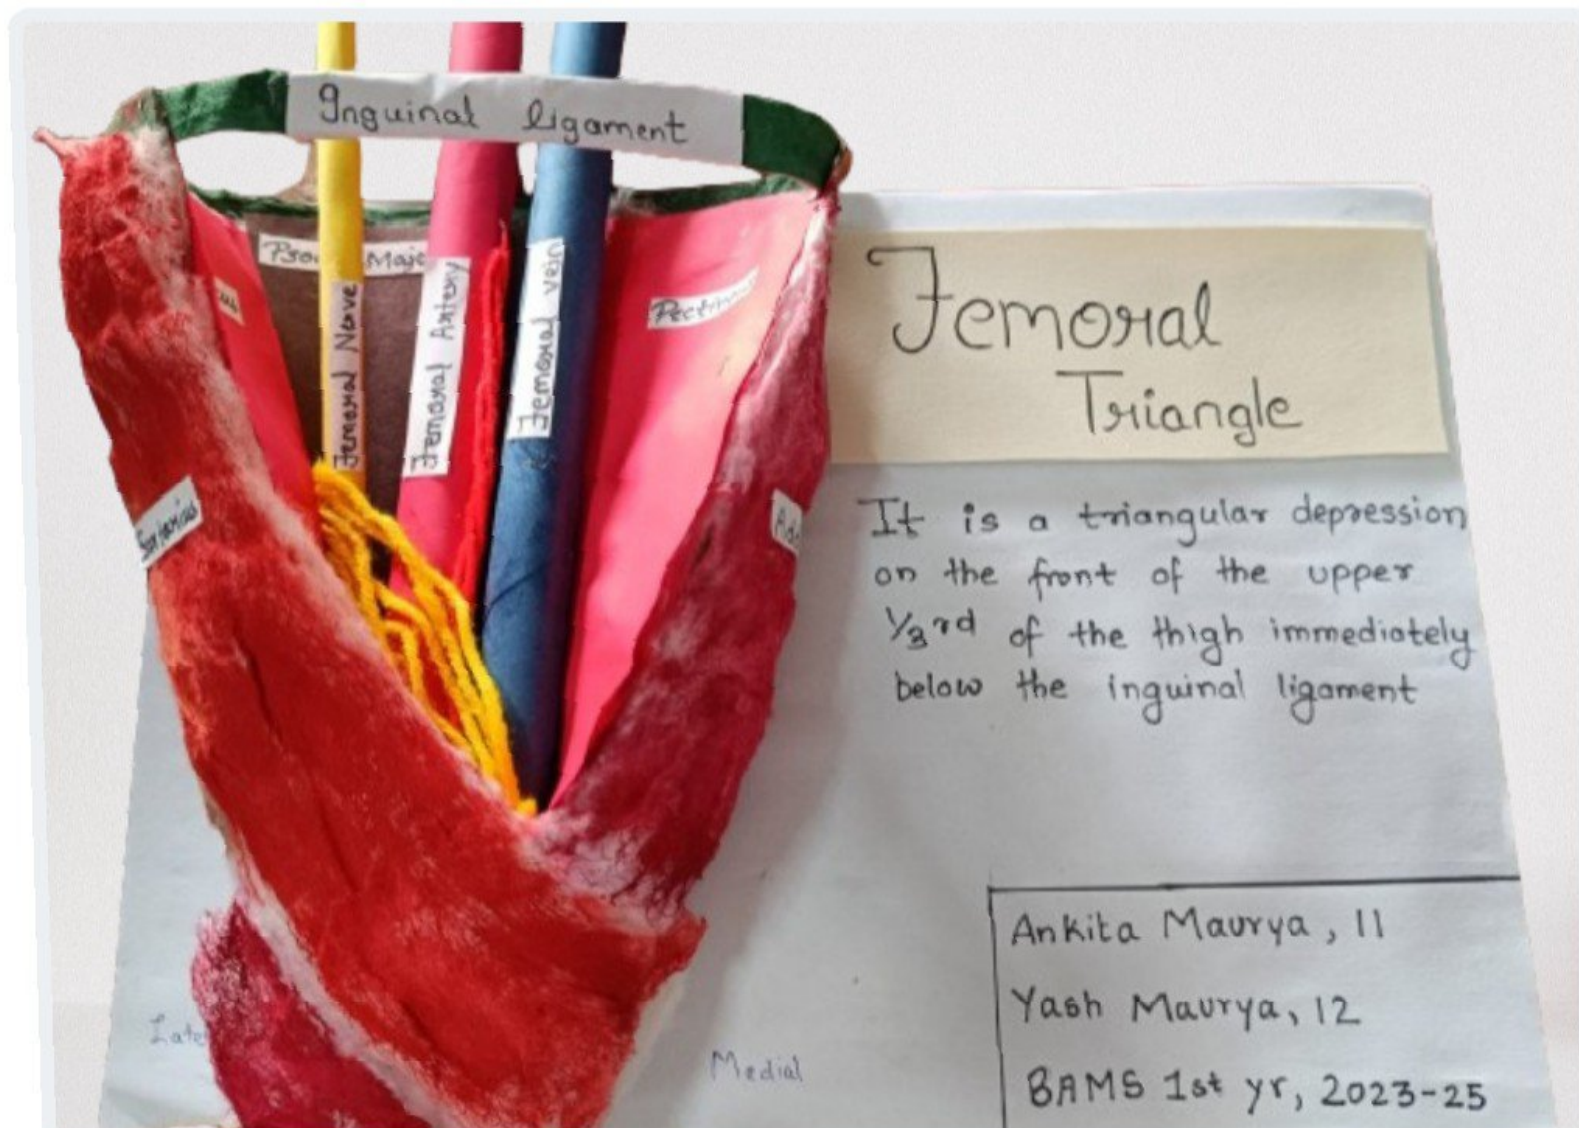 Inguinal ligament
Psoas Major
Femoral Nerve
Femoral Artery
Femoral vein
Pectineus
Sartorius
Femoral
Triangle
It is a triangular depression
on the front of the upper
1/3rd of the thigh immediately
below the inguinal ligament
Medial
Ankita Maurya, 11
Yash Maurya, 12
BAMS 1st yr, 2023-25